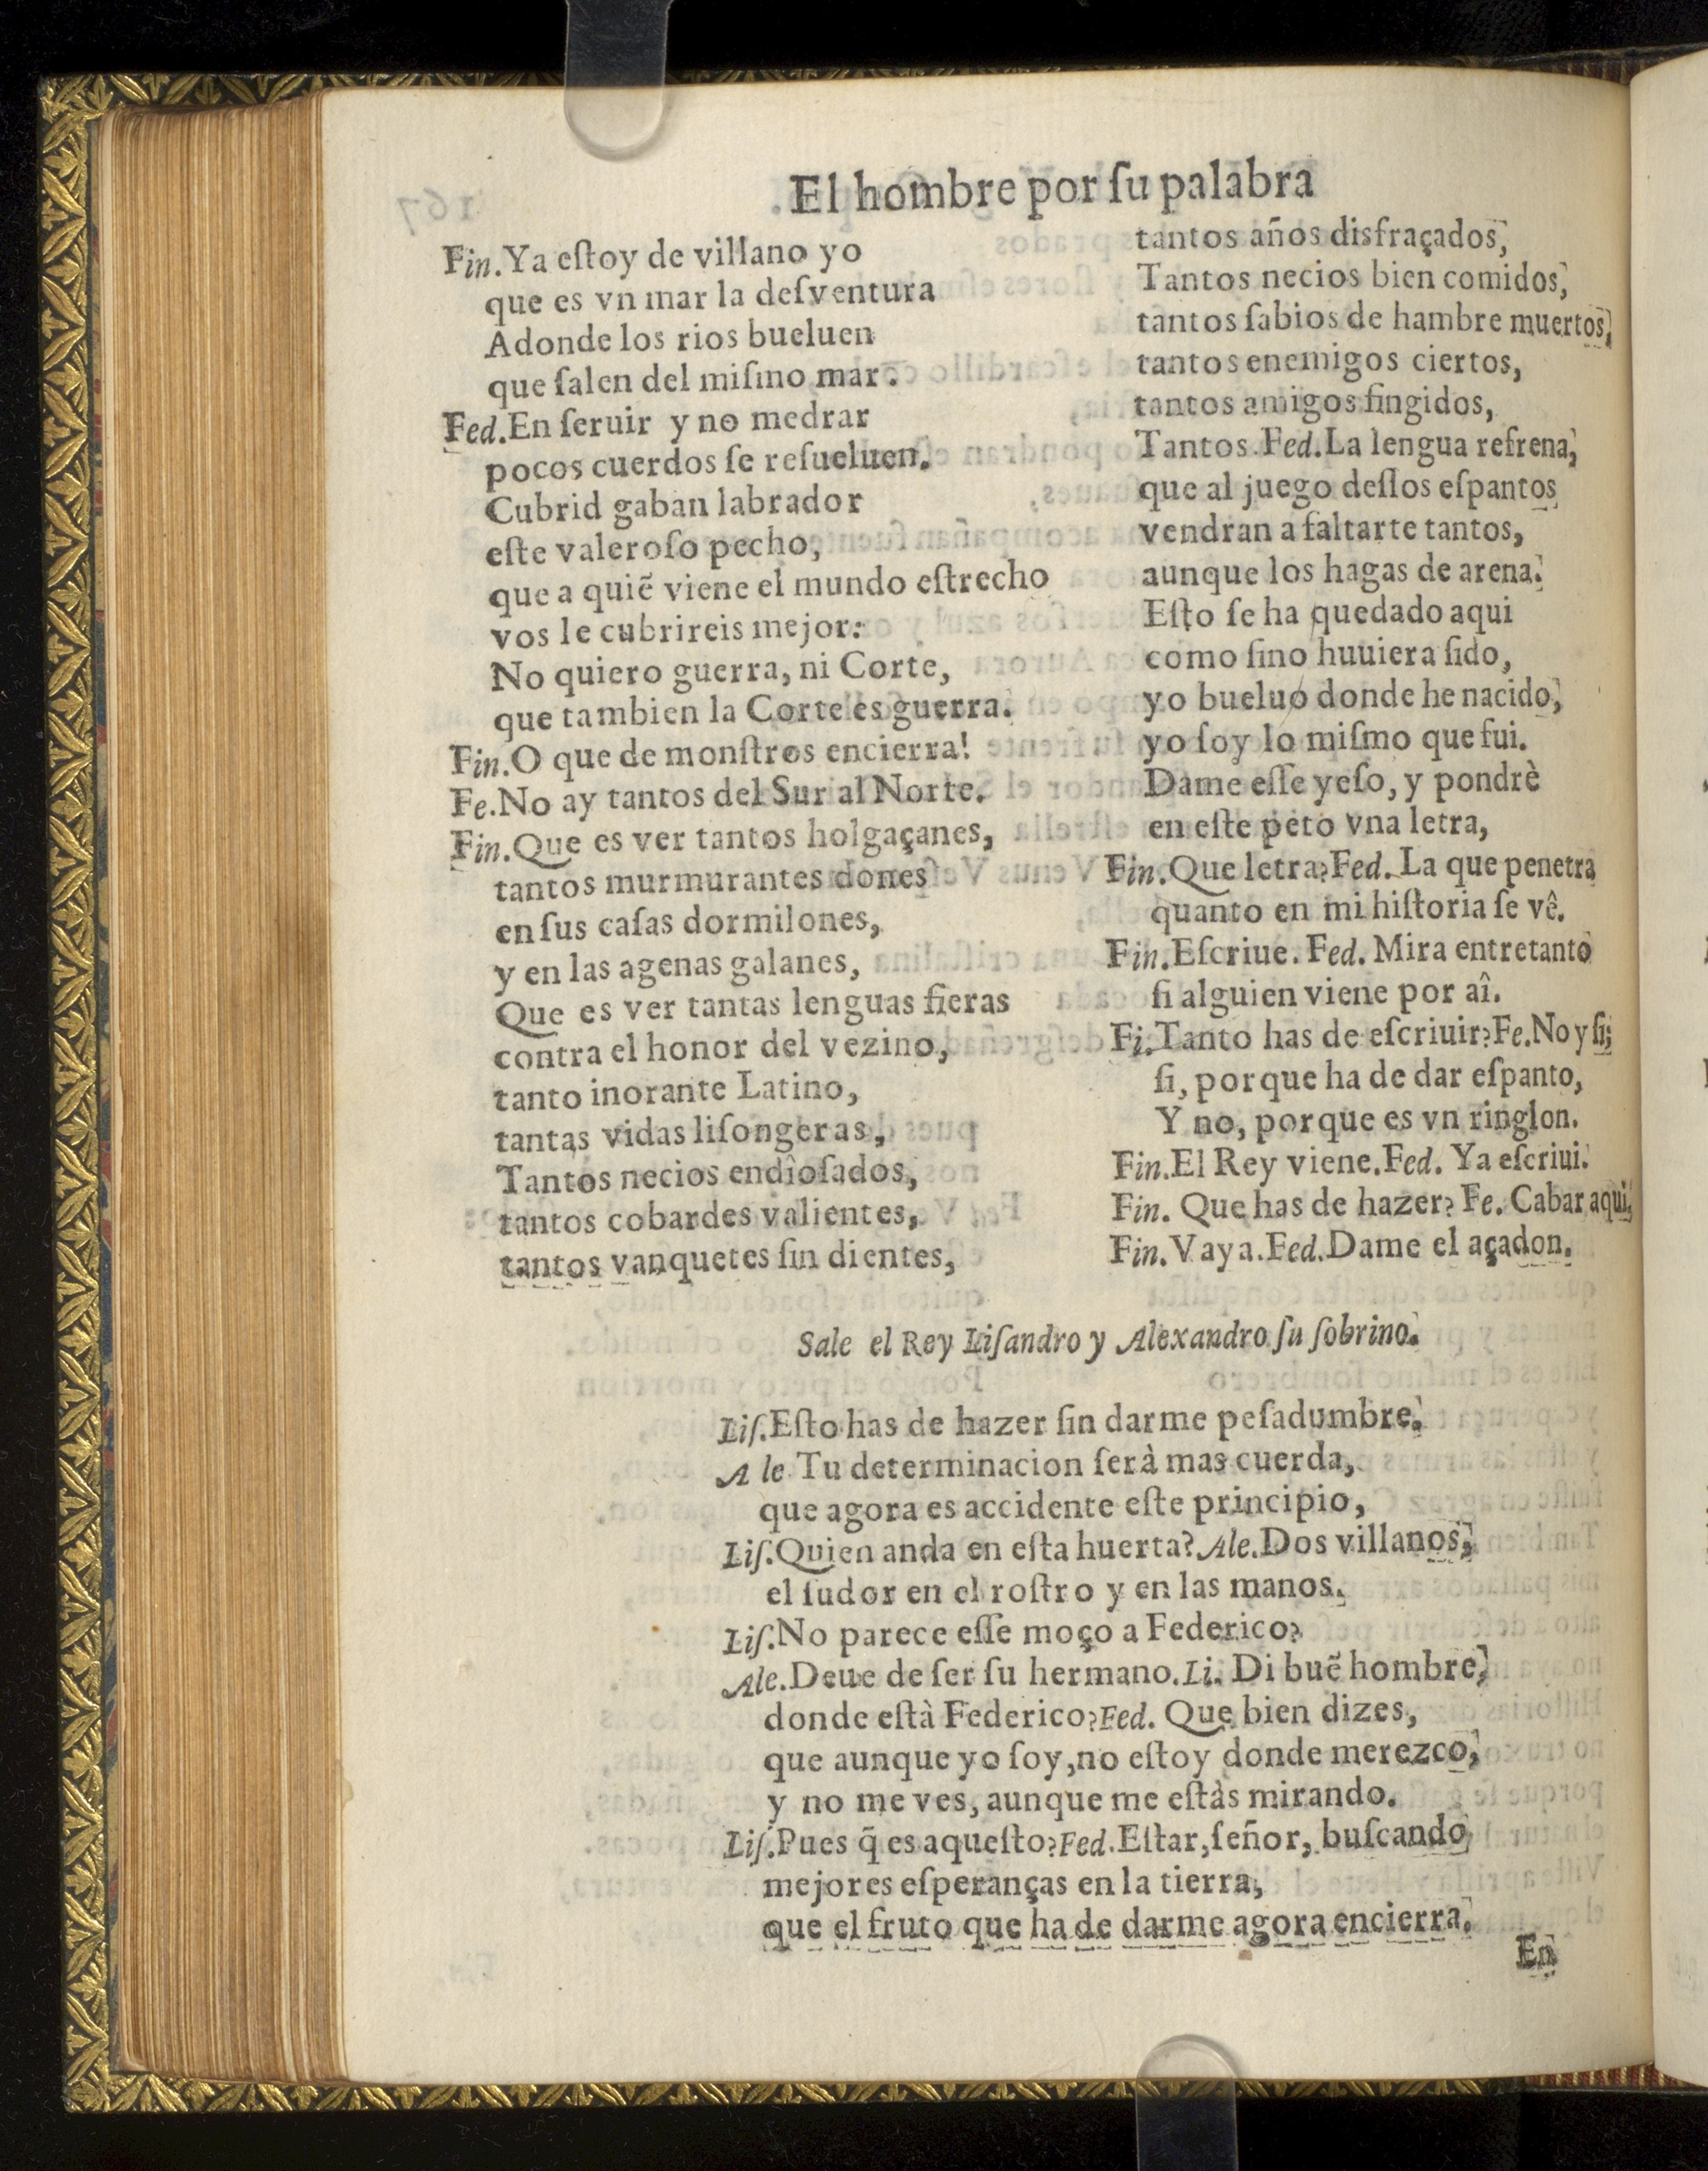 El hombre por ſu palabra
Fin.Ya eſtoy de villano yo
que es vn mar la deſventura
Adonde los rios bueluen
que ſalen del miſmo mar.
Fed.En ſeruir y no medrar
pocos cuerdos ſe reſueluen.
Cubrid gaban labrador
eſte valeroſo pecho,
que a quiẽ viene el mundo eſtrecho
vos le cubrireis mejor:
No quiero guerra, ni Corte,
que tambien la Corte es guerra.
Fin.O que de monſtros encierra!
Fe.No ay tantos del Sur al Norte.
Fin.Que es ver tantos holgaçanes,
tantos murmurantes dones
en ſus caſas dormilones,
y en las agenas galanes,
Que es ver tantas lenguas fieras
contra el honor del vezino,
tanto inorante Latino,
tantas vidas liſongeras,
Tantos necios endîoſados,
tantos cobardes valientes,
tantos vanquetes ſin dientes,
tantos años disfraçados,
Tantos necios bien comidos,
tantos ſabios de hambre muertos,
tantos enemigos ciertos,
tantos amigos fingidos,
Tantos.Fed.La lengua refrena,
que al juego deſſos eſpantos
vendran a faltarte tantos,
aunque los hagas de arena.
Eſto ſe ha quedado aqui
como ſino huuiera ſido,
yo bueluo donde he nacido,
yo ſoy lo miſmo que fui.
Dame eſſe yeſo, y pondrè
en eſte peto vna letra,
Fin.Que letra?Fed.La que penetra
quanto en mi hiſtoria ſe vê.
Fin.Eſcriue. Fed. Mira entretanto
ſi alguien viene por aî.
Fi.Tanto has de eſcriuir?Fe.No y ſi;
ſi, porque ha de dar eſpanto,
Y no, porque es vn ringlon.
Fin.El Rey viene.Fed. Ya eſcriui.
Fin. Que has de hazer? Fe. Cabar aqui.
Fin.Vaya.Fed.Dame el açadon.
Sale el Rey Liſandro y Alexandro ſu ſobrino.
Liſ.Eſto has de hazer ſin darme peſadumbre.
Ale Tu determinacion ſerà mas cuerda,
que agora es accidente eſte principio,
Liſ.Quien anda en eſta huerta? Ale.Dos villanos,
el ſudor en el roſtro y en las manos.
Liſ.No parece eſſe moço a Federico?
Ale.Deue de ſer ſu hermano.Li. Di buẽ hombre,
donde eſtà Federico?Fed. Que bien dizes,
que aunque yo ſoy,no eſtoy donde merezco,
y no me ves, aunque me eſtàs mirando.
Liſ.Pues q̃ es aqueſto?Fed.Eſtar,ſeñor, buſcando
mejores eſperanças en la tierra,
que el fruto que ha de darme agora encierra.
En